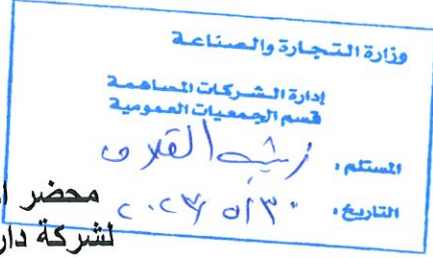 وزارة التجارة والصناعة
إدارة الشركات المساهمة
قسم الجمعيات العمومية
المستلم :
التاريخ : ٢٠٢٣/٥/٣٠
محضر
لشركة دار